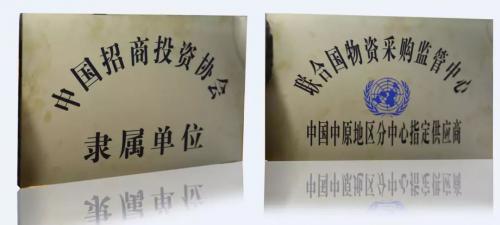 中国招商投资协会
隶属单位
联合国物资采购监管中心
中国中原地区分中心指定供应商